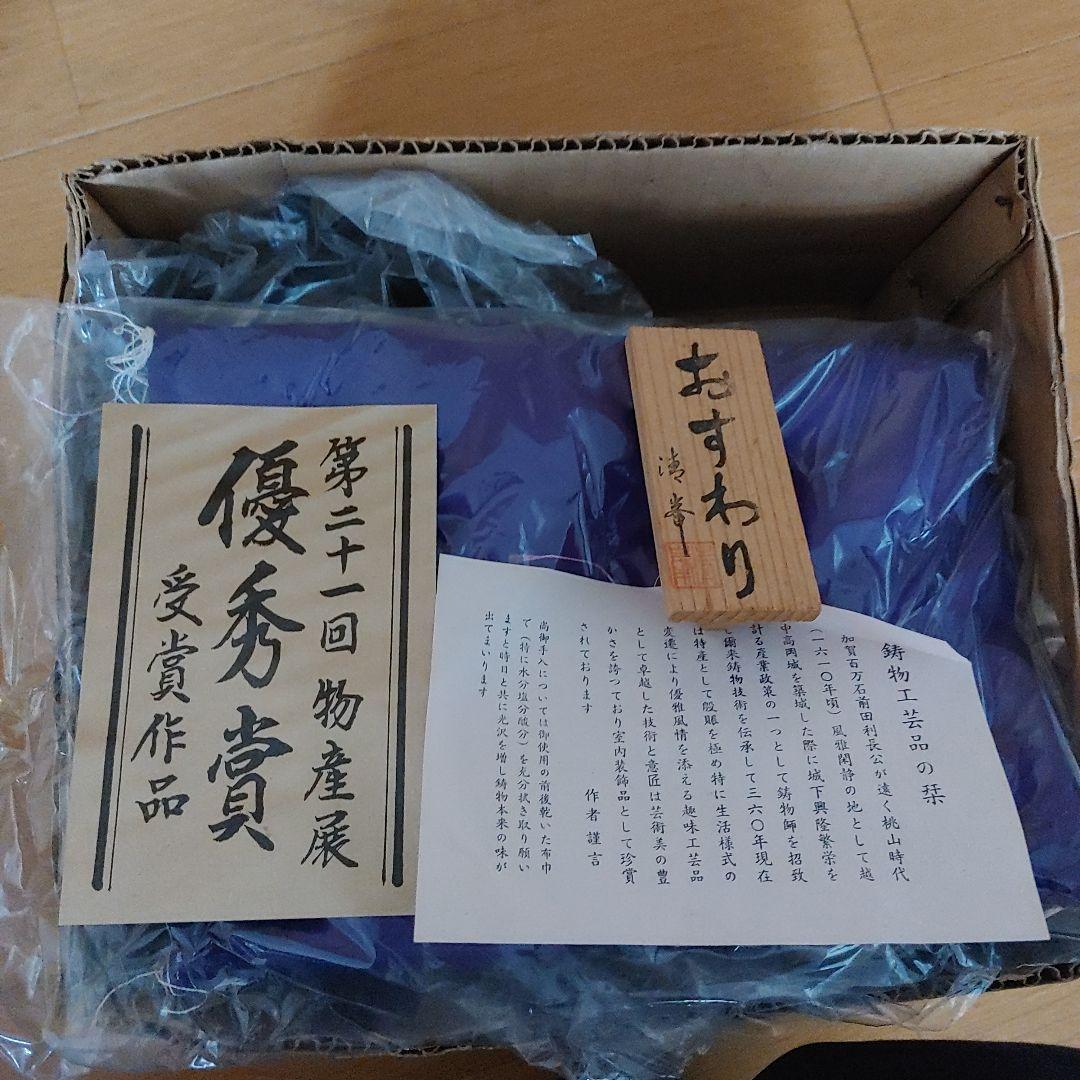 第二十一回 物産展
優秀賞
受賞作品
おすわり
清峯
鋳物工芸品の栞
加賀百万石前田利長公が遠く桃山時代
(一六一〇年頃)風雅閑静の地として越
中高岡城を築城した際に城下興隆繁栄を
計る産業政策の一つとして鋳物師を招致
し爾来鋳物技術を伝承して三六〇年現在
は特産として殷賑を極め特に生活様式の
変遷により優雅風情を添える趣味工芸品
として卓越した技術と意匠は芸術美の豊
かさを誇っており室内装飾品として珍賞
されております
作者謹言
尚御手入については御使用の前後乾いた布巾
て(特に水分塩分酸分)を充分拭き取り願い
ますと時日と共に光沢を増し鋳物本来の味が
出てまいります